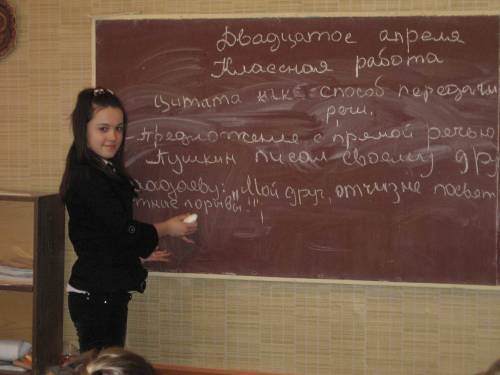 Двадцатое апреля
Классная работа
Цитата как способ передачи
речи.
-Предложение с прямой речью
Пушкин писал своему дру
чадаеву: „Мой друг, отчизне посвят
тные порывы!"